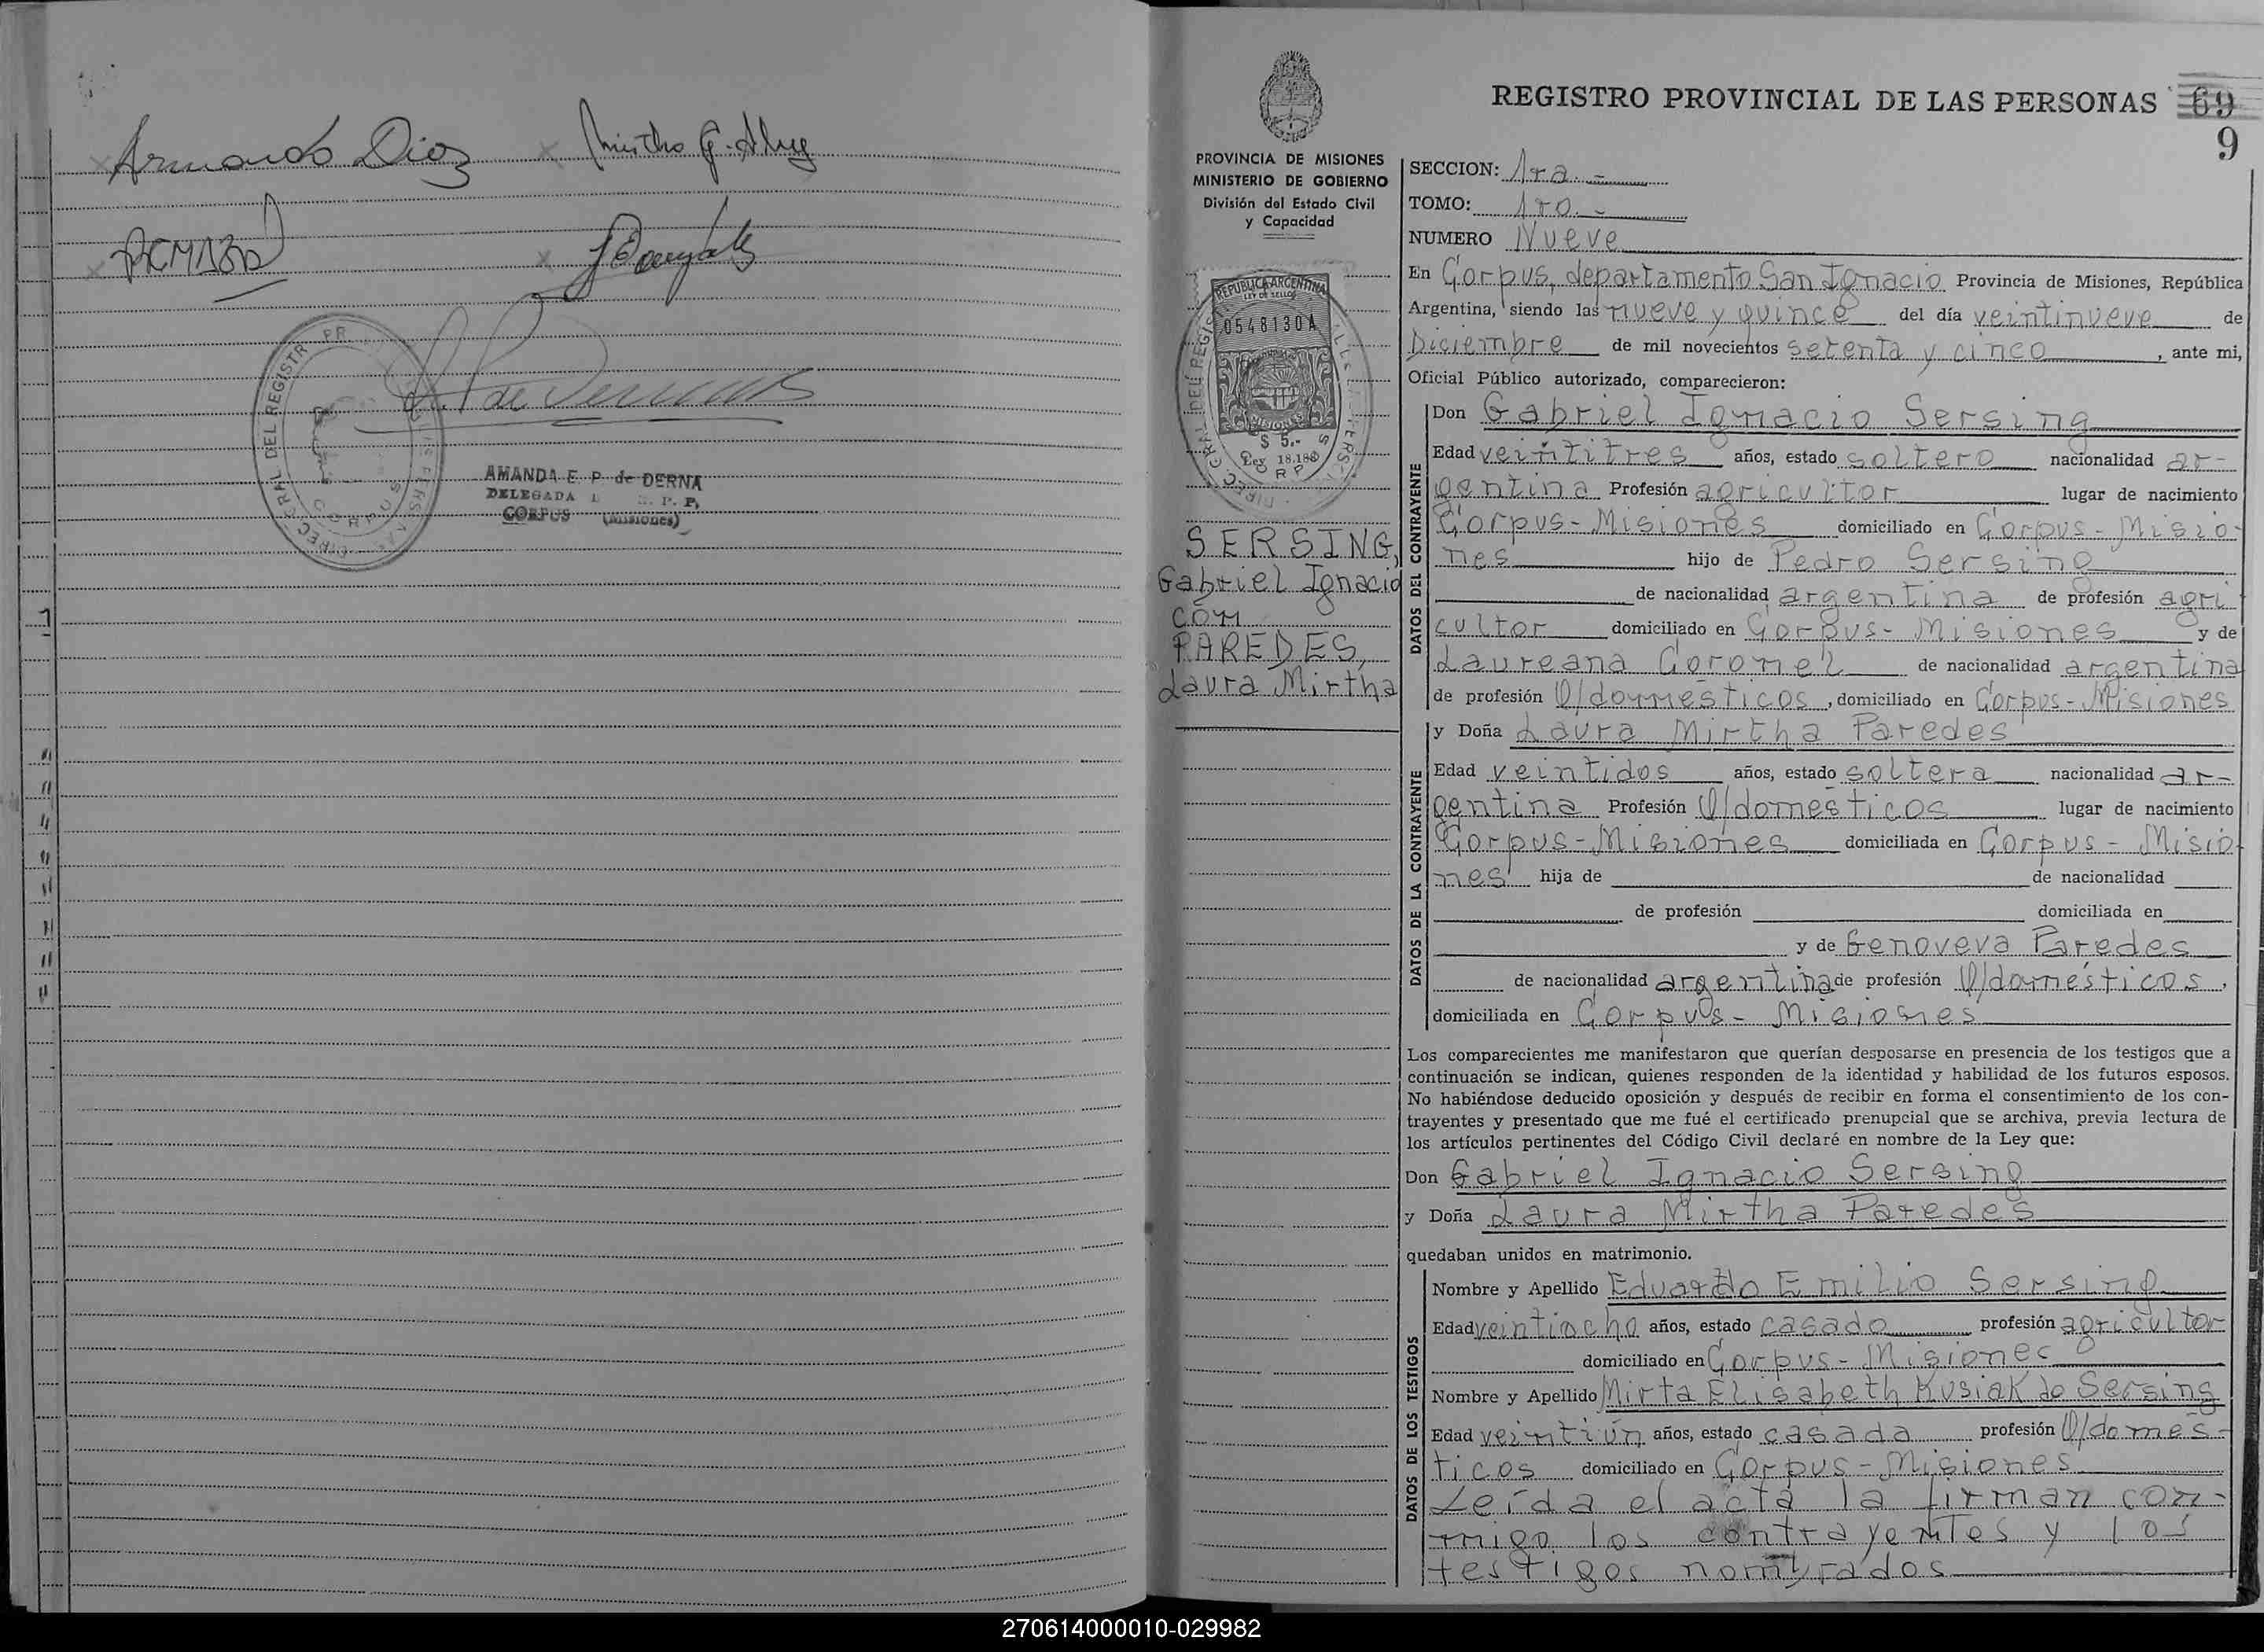 Armando Diaz
AMANDA E. P. de DERNA
DELEGADA
CORPUS (Misiones)
REGISTRO PROVINCIAL DE LAS PERSONAS 69
9
PROVINCIA DE MISIONES
MINISTERIO DE GOBIERNO
División del Estado Civil
y Capacidad
REPUBLICA ARGENTINA
LEY DE SELLOS
0548130A
MISIONES
$ 5.-
Ley 18.188
SERSING,
Gabriel Ignacio
con
PAREDES,
Laura Mirtha
SECCION: 1ra.-
TOMO: 1ro.-
NUMERO Nueve
En Corpus, departamento San Ignacio Provincia de Misiones, República
Argentina, siendo las nueve y quince del día veintinueve de
Diciembre de mil novecientos setenta y cinco, ante mi,
Oficial Público autorizado, comparecieron:
DATOS DEL CONTRAYENTE
Don Gabriel Ignacio Sersing
Edad veintitres años, estado soltero nacionalidad ar-
gentina Profesión agricultor lugar de nacimiento
Corpus-Misiones domiciliado en Corpus-Misio-
nes hijo de Pedro Sersing
de nacionalidad argentina de profesión agri
cultor domiciliado en Corpus-Misiones y de
Laureana Coronel de nacionalidad argentina
de profesión Q/domésticos, domiciliado en Corpus-Misiones
DATOS DE LA CONTRAYENTE
y Doña Laura Mirtha Paredes
Edad veintidos años, estado soltera nacionalidad ar-
gentina Profesión Q/domésticos lugar de nacimiento
Corpus-Misiones domiciliada en Corpus - Misio-
nes hija de de nacionalidad
de profesión domiciliada en
y de Genoveva Paredes
de nacionalidad argentina de profesión Q/domésticos,
domiciliada en Corpus- Misiones
Los comparecientes me manifestaron que querían desposarse en presencia de los testigos que a
continuación se indican, quienes responden de la identidad y habilidad de los futuros esposos.
No habiéndose deducido oposición y después de recibir en forma el consentimiento de los con-
trayentes y presentado que me fué el certificado prenupcial que se archiva, previa lectura de
los artículos pertinentes del Código Civil declaré en nombre de la Ley que:
Don Gabriel Ignacio Sersing
y Doña Laura Mirtha Paredes
quedaban unidos en matrimonio.
DATOS DE LOS TESTIGOS
Nombre y Apellido Eduardo Emilio Sersing
Edad veintiocho años, estado casado profesión agricultor
domiciliado en Corpus-Misiones
Nombre y Apellido Mirta Elisabeth Kusiak de Sersing
Edad veintiún años, estado casada profesión Q/domés-
ticos domiciliado en Corpus-Misiones
Leída el acta la firman con-
migo los contrayentes y los
testigos nombrados
270614000010-029982